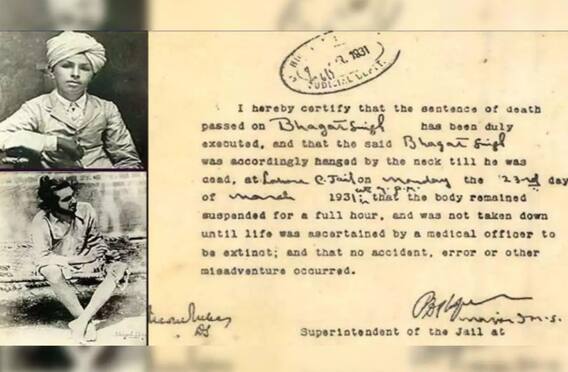 1931
JUDICIAL DEPT.
I hereby certify that the sentence of death
passed on Bhagat Singh has been duly
executed, and that the said Bhagat Singh
was accordingly hanged by the neck till he was
dead, at Lahore C. Jail on Monday the 23rd day
of March 1931 at 7 P.M. that the body remained
suspended for a full hour, and was not taken down
until life was ascertained by a medical officer to
be extinct; and that no accident, error or other
misadventure occurred.
Major I.M.S.
Superintendent of the Jail at